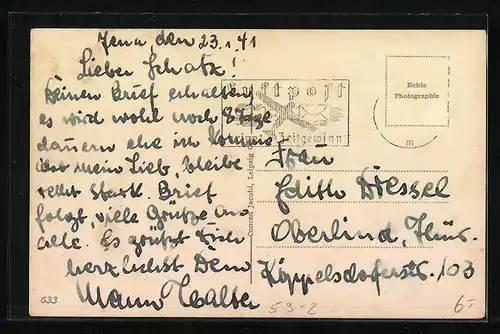 Jena, den 23.1.41
Lieber Schatz!
Deinen Brief erhalten
es wird wohl noch 8 Tage
dauern ehe ich komme
mein Lieb, bleibe
recht stark. Brief
folgt, viele Grüße an
alle. Es grüßt Dich
herzlichst Dein
Mann Walter
633
Luftpost
Zeitgewinn
Echte
Photographie
m
Conrad Jacobi, Leipzig
Frau
Edith Dressel
Oberlind, Thür.
Köppelsdorferstr. 103
53-2
6.-